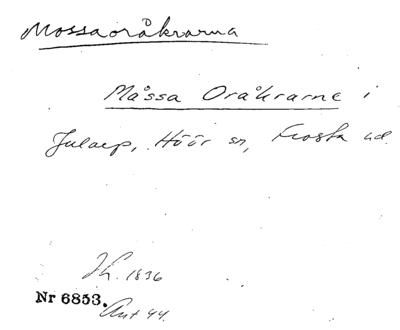 Mossaoråkrarna
Måssa Oråkrarne i
Jularp, Höör sn, Frosta hd.
Jh. 1836
Nr 6853.
Akt 44.